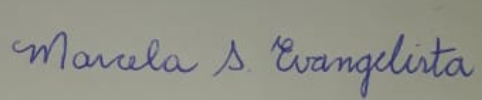 Marcela S. Evangelista